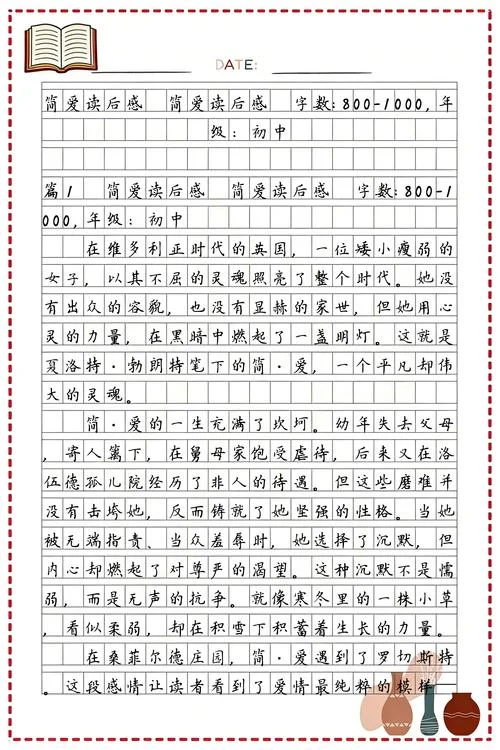 DATE:
简爱读后感 简爱读后感 字数:800-1000,年
级: 初中
篇1 简爱读后感 简爱读后感 字数:800-1
000,年级: 初中
在维多利亚时代的英国，一位矮小瘦弱的
女子，以其不屈的灵魂照亮了整个时代。她没
有出众的容貌，也没有显赫的家世，但她用心
灵的力量，在黑暗中燃起了一盏明灯。这就是
夏洛特·勃朗特笔下的简·爱，一个平凡却伟
大的灵魂。
简·爱的一生充满了坎坷。幼年失去父母
，寄人篱下，在舅母家饱受虐待，后来又在洛
伍德孤儿院经历了非人的待遇。但这些磨难并
没有击垮她，反而铸就了她坚强的性格。当她
被无端指责、当众羞辱时，她选择了沉默，但
内心却燃起了对尊严的渴望。这种沉默不是懦
弱，而是无声的抗争。就像寒冬里的一株小草
，看似柔弱，却在积雪下积蓄着生长的力量。
在桑菲尔德庄园，简·爱遇到了罗切斯特
。这段感情让读者看到了爱情最纯粹的模样